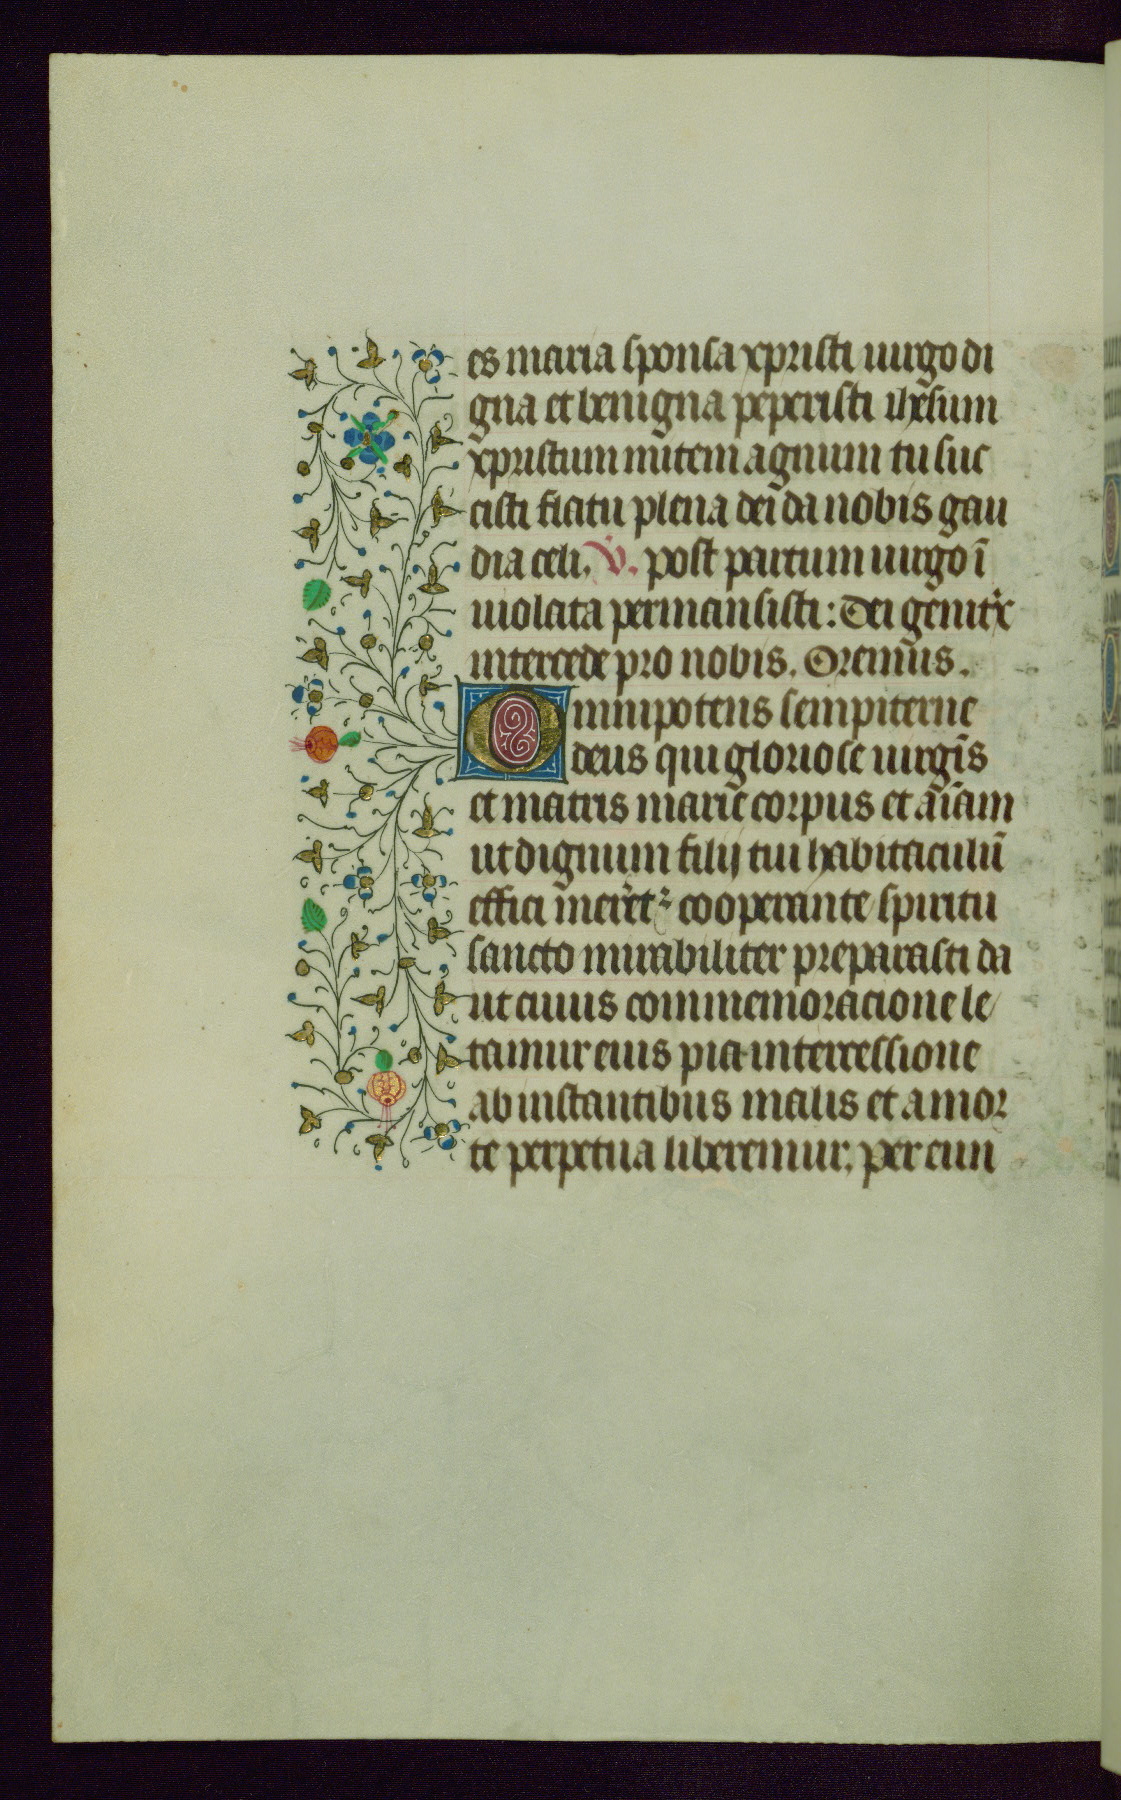 es maria sponsa xpristi uirgo di
gna et benigna peperisti ihesum
xpristum mitem agnum tu suc
cisti flatu plena dei da nobis gau
dia celi. V̇. post partum uirgo ī
uiolata permansisti: Dei genit̾x
intercede pro nobis. Oremus.
Omnipotens sempiterne
deus qui gloriose uirgīs
et matris marie corpus et aīam
ut dignum filij tui habitaculū
effici meret² cooperante spiritu
sancto mirabiliter preparasti da
ut cuius commemoracione le
tamur eius pia intercessione
ab instantibus malis et a mor
te perpetua liberemur. per eun